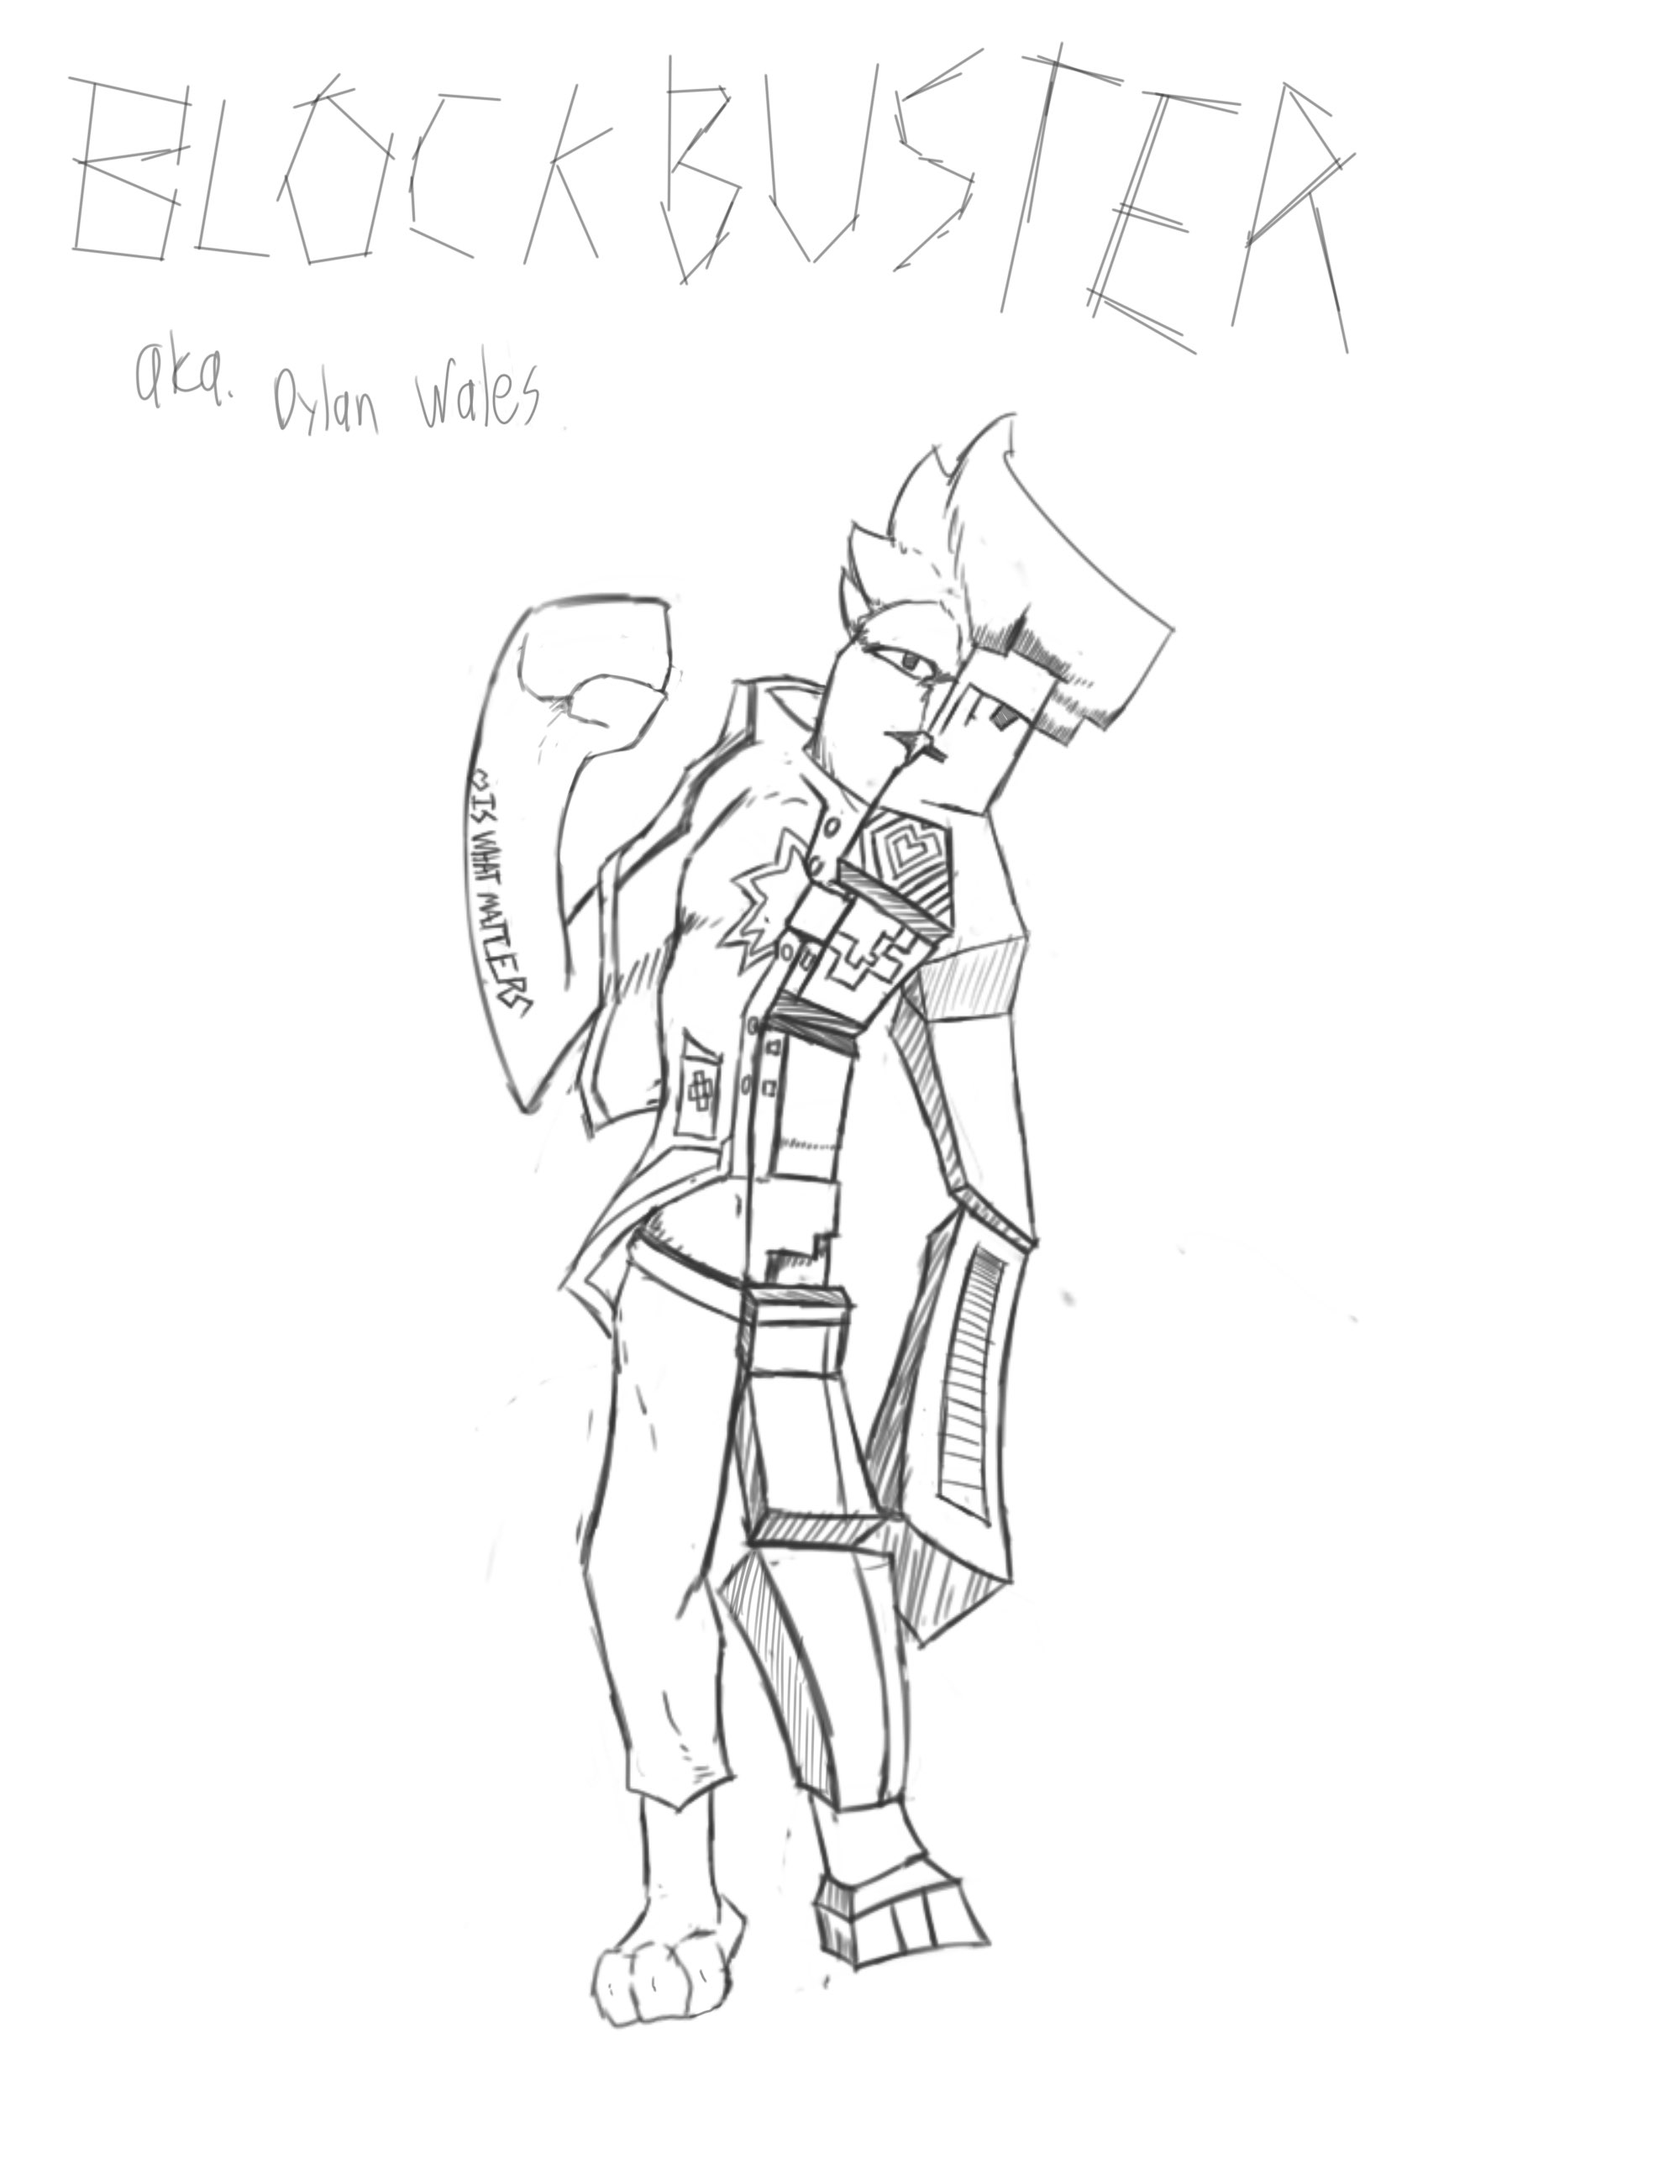 BLOCKBUSTER
aka. Dylan Wales
IS WHAT MATTERS